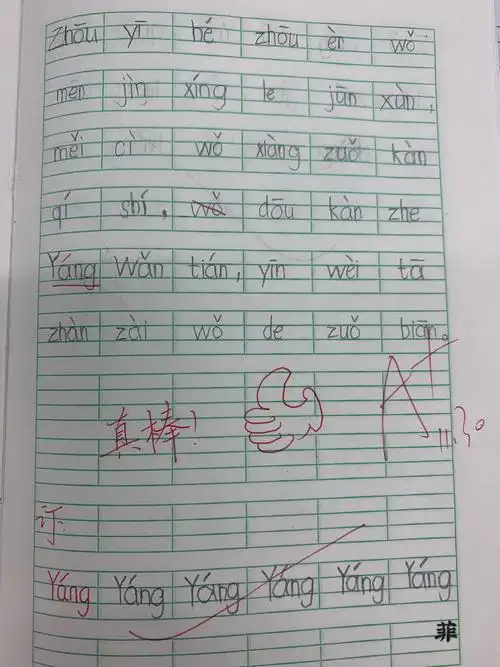 Zhōu yī hé zhōu èr wǒ
mēn jìn xíng le jūn xùn,
měi cì wǒ xiàng zuǒ kàn
qí shí, wǒ dōu kàn zhe
Yáng Wǎn tián, yīn wèi tā
zhàn zài wǒ de zuǒ biān。
真棒! A+
11.30
订
Yáng Yáng Yáng Yáng Yáng Yáng
菲